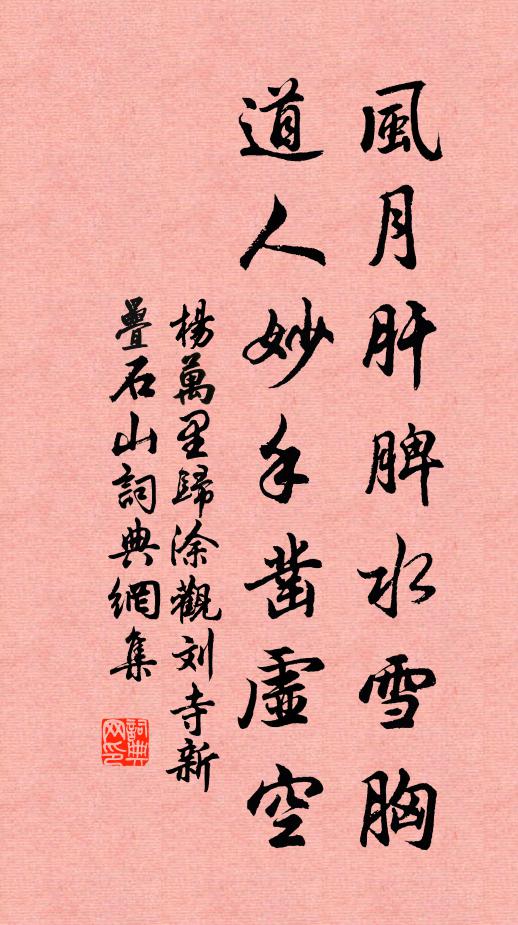 風月肝脾水雪胸
道人妙手凿虛空
楊萬里歸涂觀刘寺新
疊石山詞典網集
詞典网印